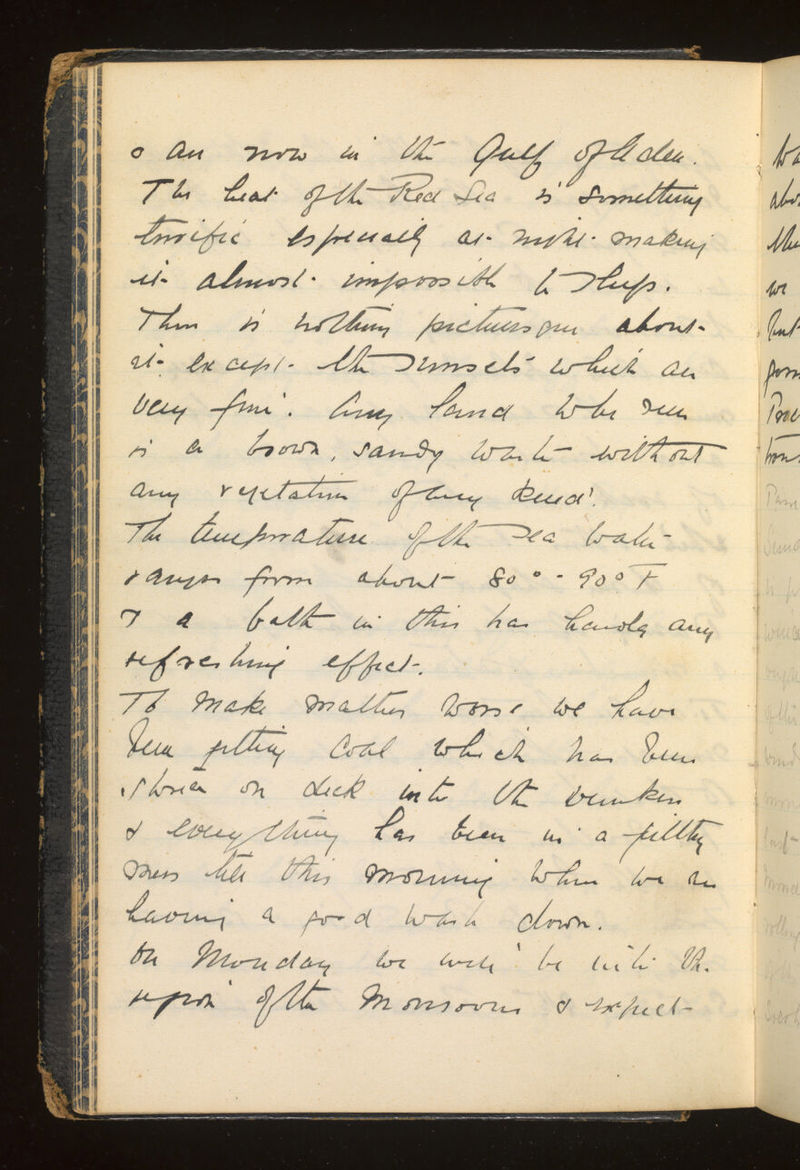 & are now in the Gulf of Aden.
The heat of the Red Sea is something
terrific especially at night making
it almost impossible to sleep.
There is nothing picturesque about
it except the sunsets which are
very fine. Any land to be seen
is a brown, sandy waste without
any vegetation of any kind.
The temperature of the sea water
ranges from about 80° - 90° F
& a bath in this has hardly any
refreshing effect.
To make matters worse we have
been getting coal which has been
stored on deck into the bunkers
& everything has been in a filthy
mess till this morning when we are
having a good wash down.
On Monday we will be into the
region of the Monsoons & expect